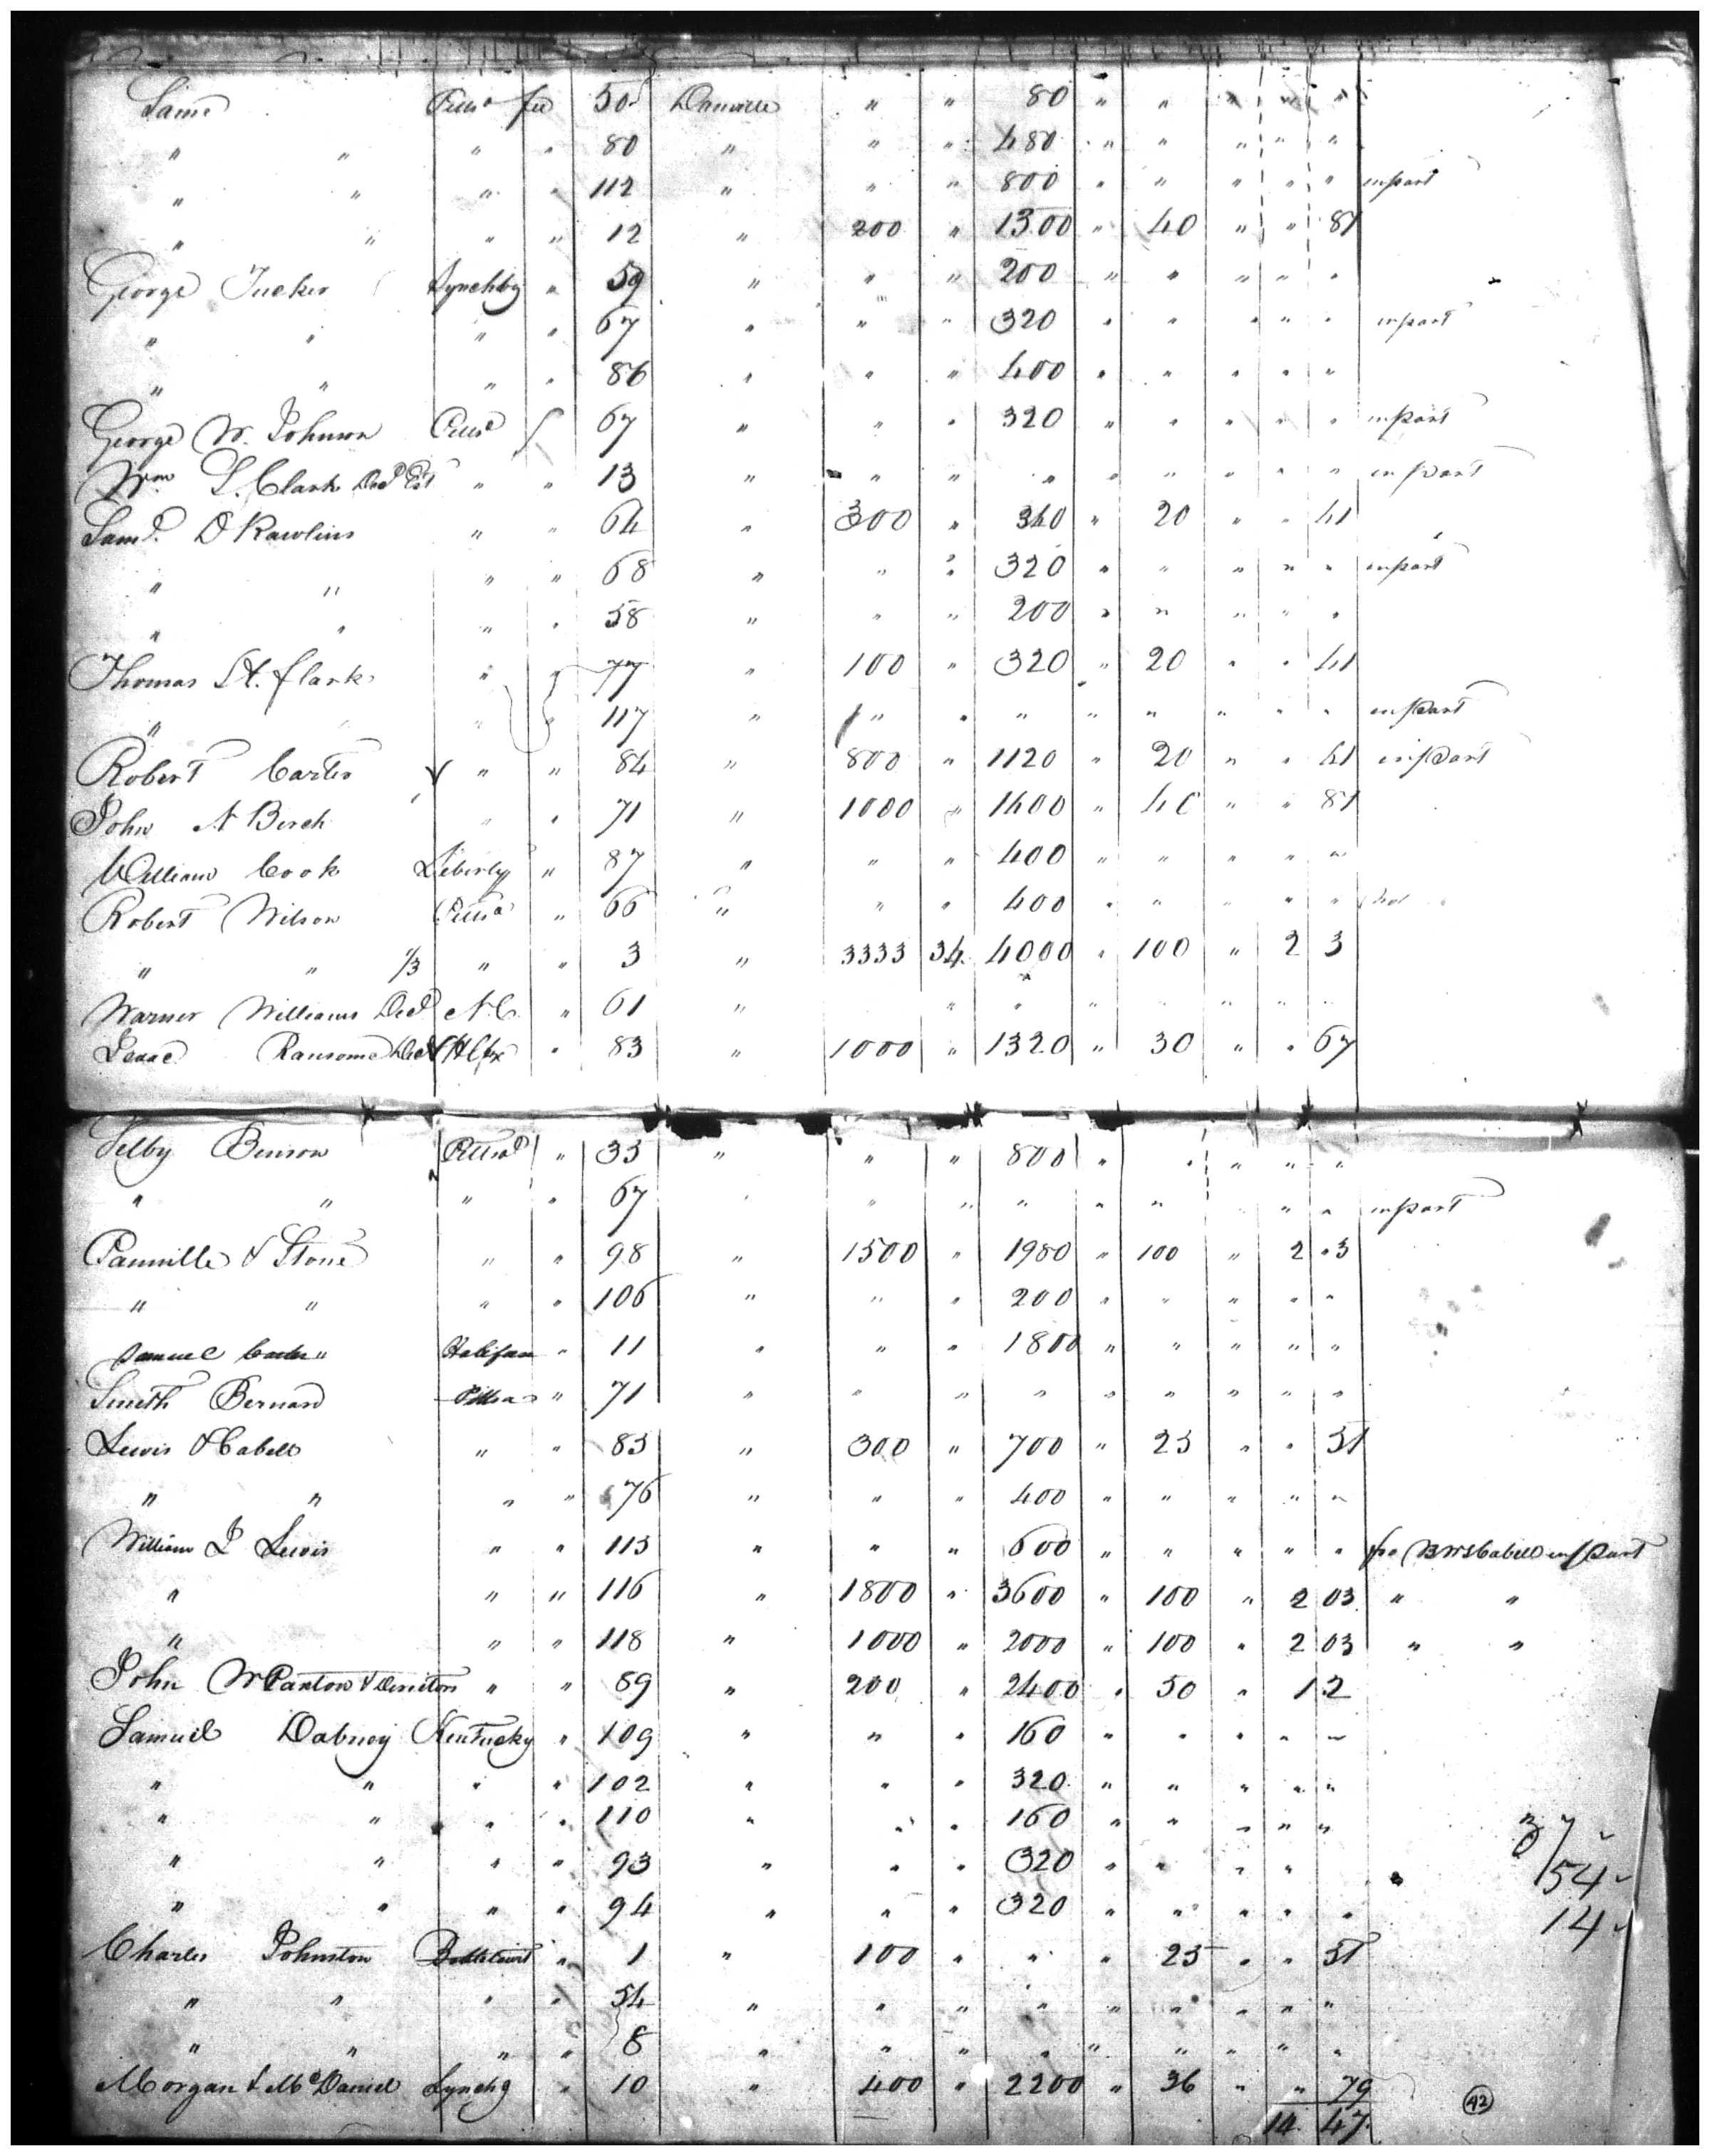 Same Pitts a fee 50 Danville " " 80 " " " " "
" " " " 80 " " " 480 " " " " "
" " " " 112 " " " 800 " " " " " in part
" " " " 12 " 200 " 1300 " 40 " " 81
George Tucker Lynchbg " 59 " " " 200 " " " " "
" " " " 67 " " " 320 " " " " " in part
" " " " 86 " " " 400 " " " " "
George W. Johnson Pittsa f 67 " " " 320 " " " " " in part
Wm L. Clark Decd Est " " 13 " " " " " " " " " in part
Saml. D Rawlins " " 64 " 300 " 340 " 20 " " 41
" " " " 68 " " " 320 " " " " " in part
" " " " 58 " " " 200 " " " " "
Thomas St. Clark " " 77 " 100 " 320 " 20 " " 41
" " " 117 " " " " " " " " " in part
Robert Carter " " 84 " 800 " 1120 " 20 " " 41 in part
John N Birch " " 71 " 1000 " 1400 " 40 " " 81
William Cook Liberty " 87 " " " 400 " " " " "
Robert Wilson Pittsa " 66 " " " 400 " " " " "
" " 1/3 " " 3 " 3333 34 4000 " 100 " 2 3
Warner Williams Decd N.C. " 61 " " " " " " " "
Isaac Ransome Decd Hlfx " 83 " 1000 " 1320 " 30 " " 67
Selby Benson Pittsa " 33 " " " 800 " " " " "
" " " " 67 " " " " " " " " in part
Pannille & Stone " " 98 " 1500 " 1980 " 100 " 2 " 3
" " " " 106 " " " 200 " " " " "
Samuel Carter " Halifax " 11 " " " 1800 " " " " "
Smith Bernard Pittsa " 71 " " " " " " " " "
Lewis & Cabell " " 83 " 300 " 700 " 25 " " 51
" " " " 76 " " " 400 " " " " "
William J Lewis " " 113 " " " 600 " " " " " fr BWS Cabell in part
" " " 116 " 1800 " 3600 " 100 " 2 03 " "
" " " 118 " 1000 " 2000 " 100 " 2 03 " "
John W Paxton & " " 89 " 200 " 2400 " 50 " 1 2
Samuel Dabney Kentucky " 109 " " " 160 " " " " "
" " " " 102 " " " 320 " " " " "
" " " " 110 " " " 160 " " " " "
" " " " 93 " " " 320 " " " "
" " " " 94 " " " 320 " " " " "
Charles Johnston Bottetourt " 1 " 100 " " " 25 " " 51
" " " " 54 " " " " " " " " "
" " " " 8 " " " " " " " " "
Morgan & McDaniel Lynchg " 10 " 400 " 2200 " 36 " " 79
14 47
54
14
42